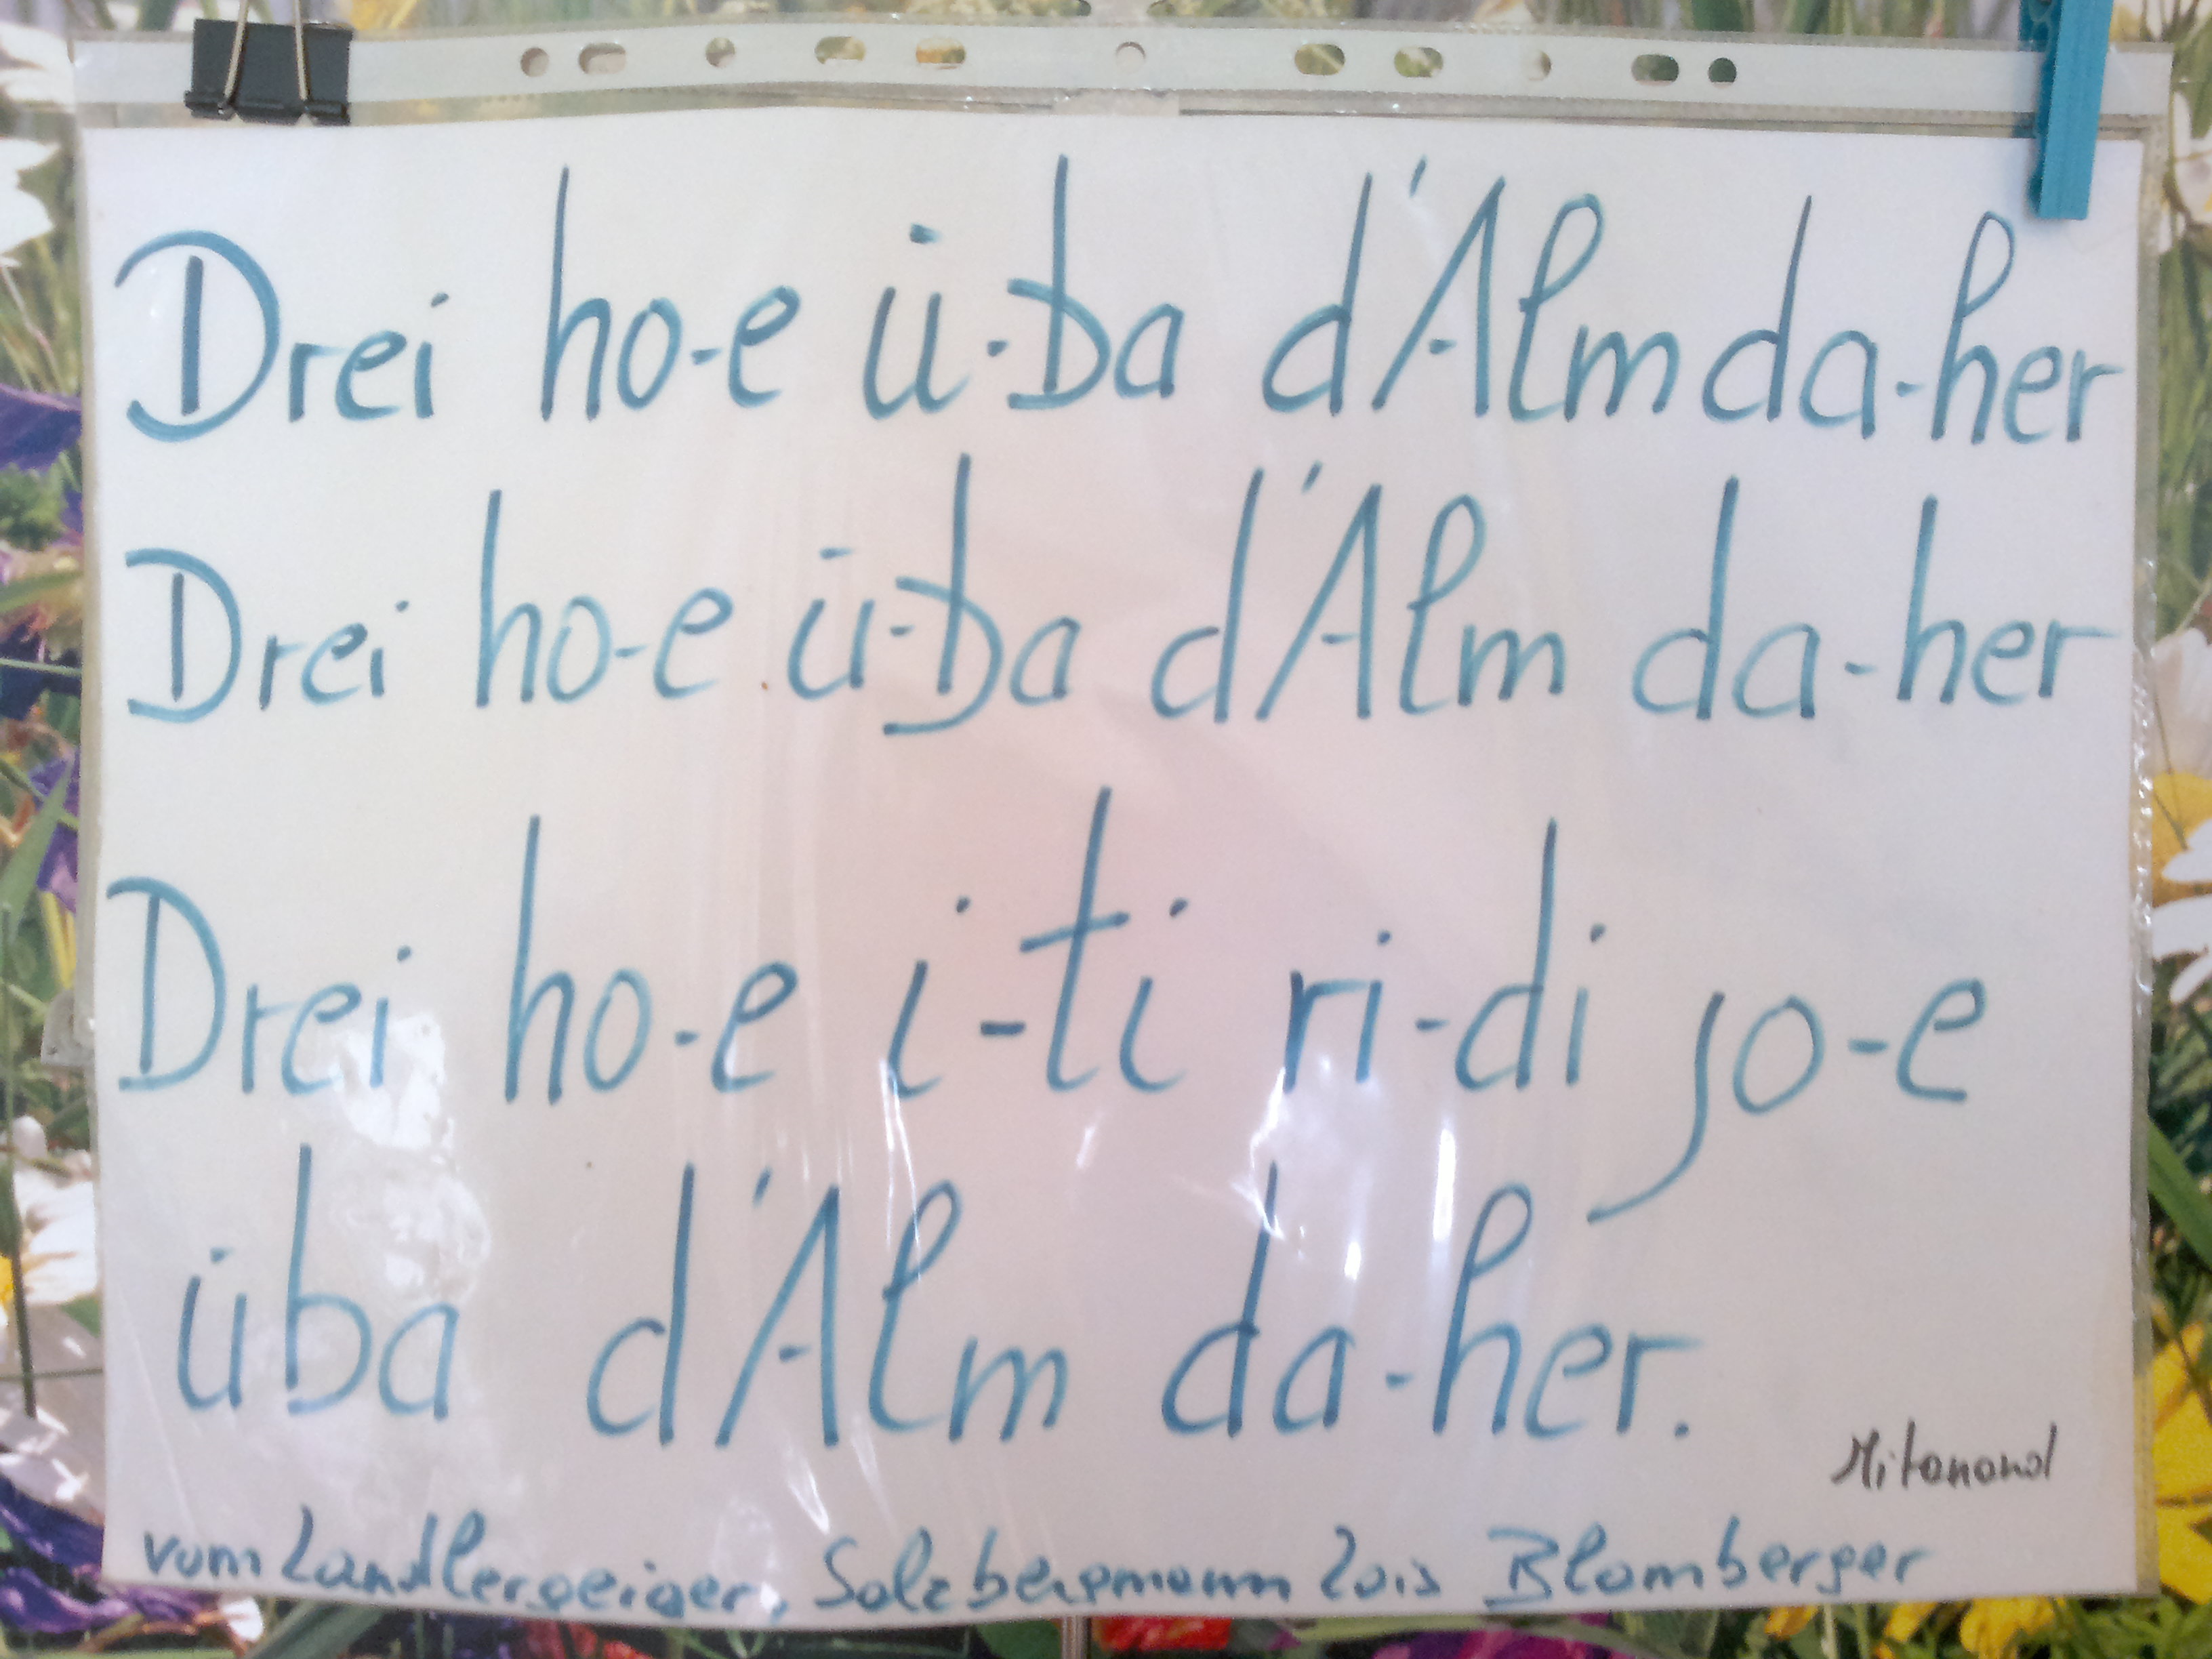 Drei ho-e ü-ba d'Alm da-her
Drei ho-e ü-ba d'Alm da-her
Drei ho-e i-ti ri-di jo-e
üba d'Alm da-her.
Mitanand
vom Landlergeiger, Salzbergmann Lois Blamberger